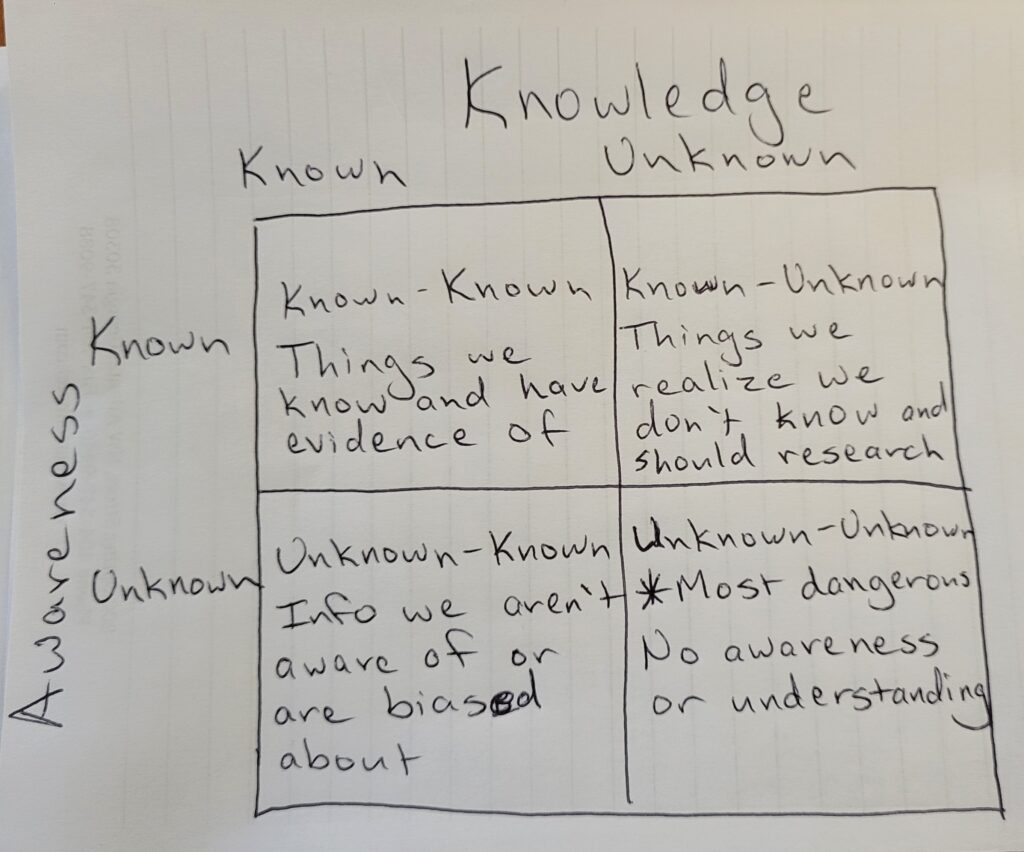 Knowledge
Known Unknown
Awareness
Known
Known-Known
Things we
know and have
evidence of
Known-Unknown
Things we
realize we
don't know and
should research
Unknown
Unknown-Known
Info we aren't
aware of or
are biased
about
Unknown-Unknown
*Most dangerous
No awareness
or understanding